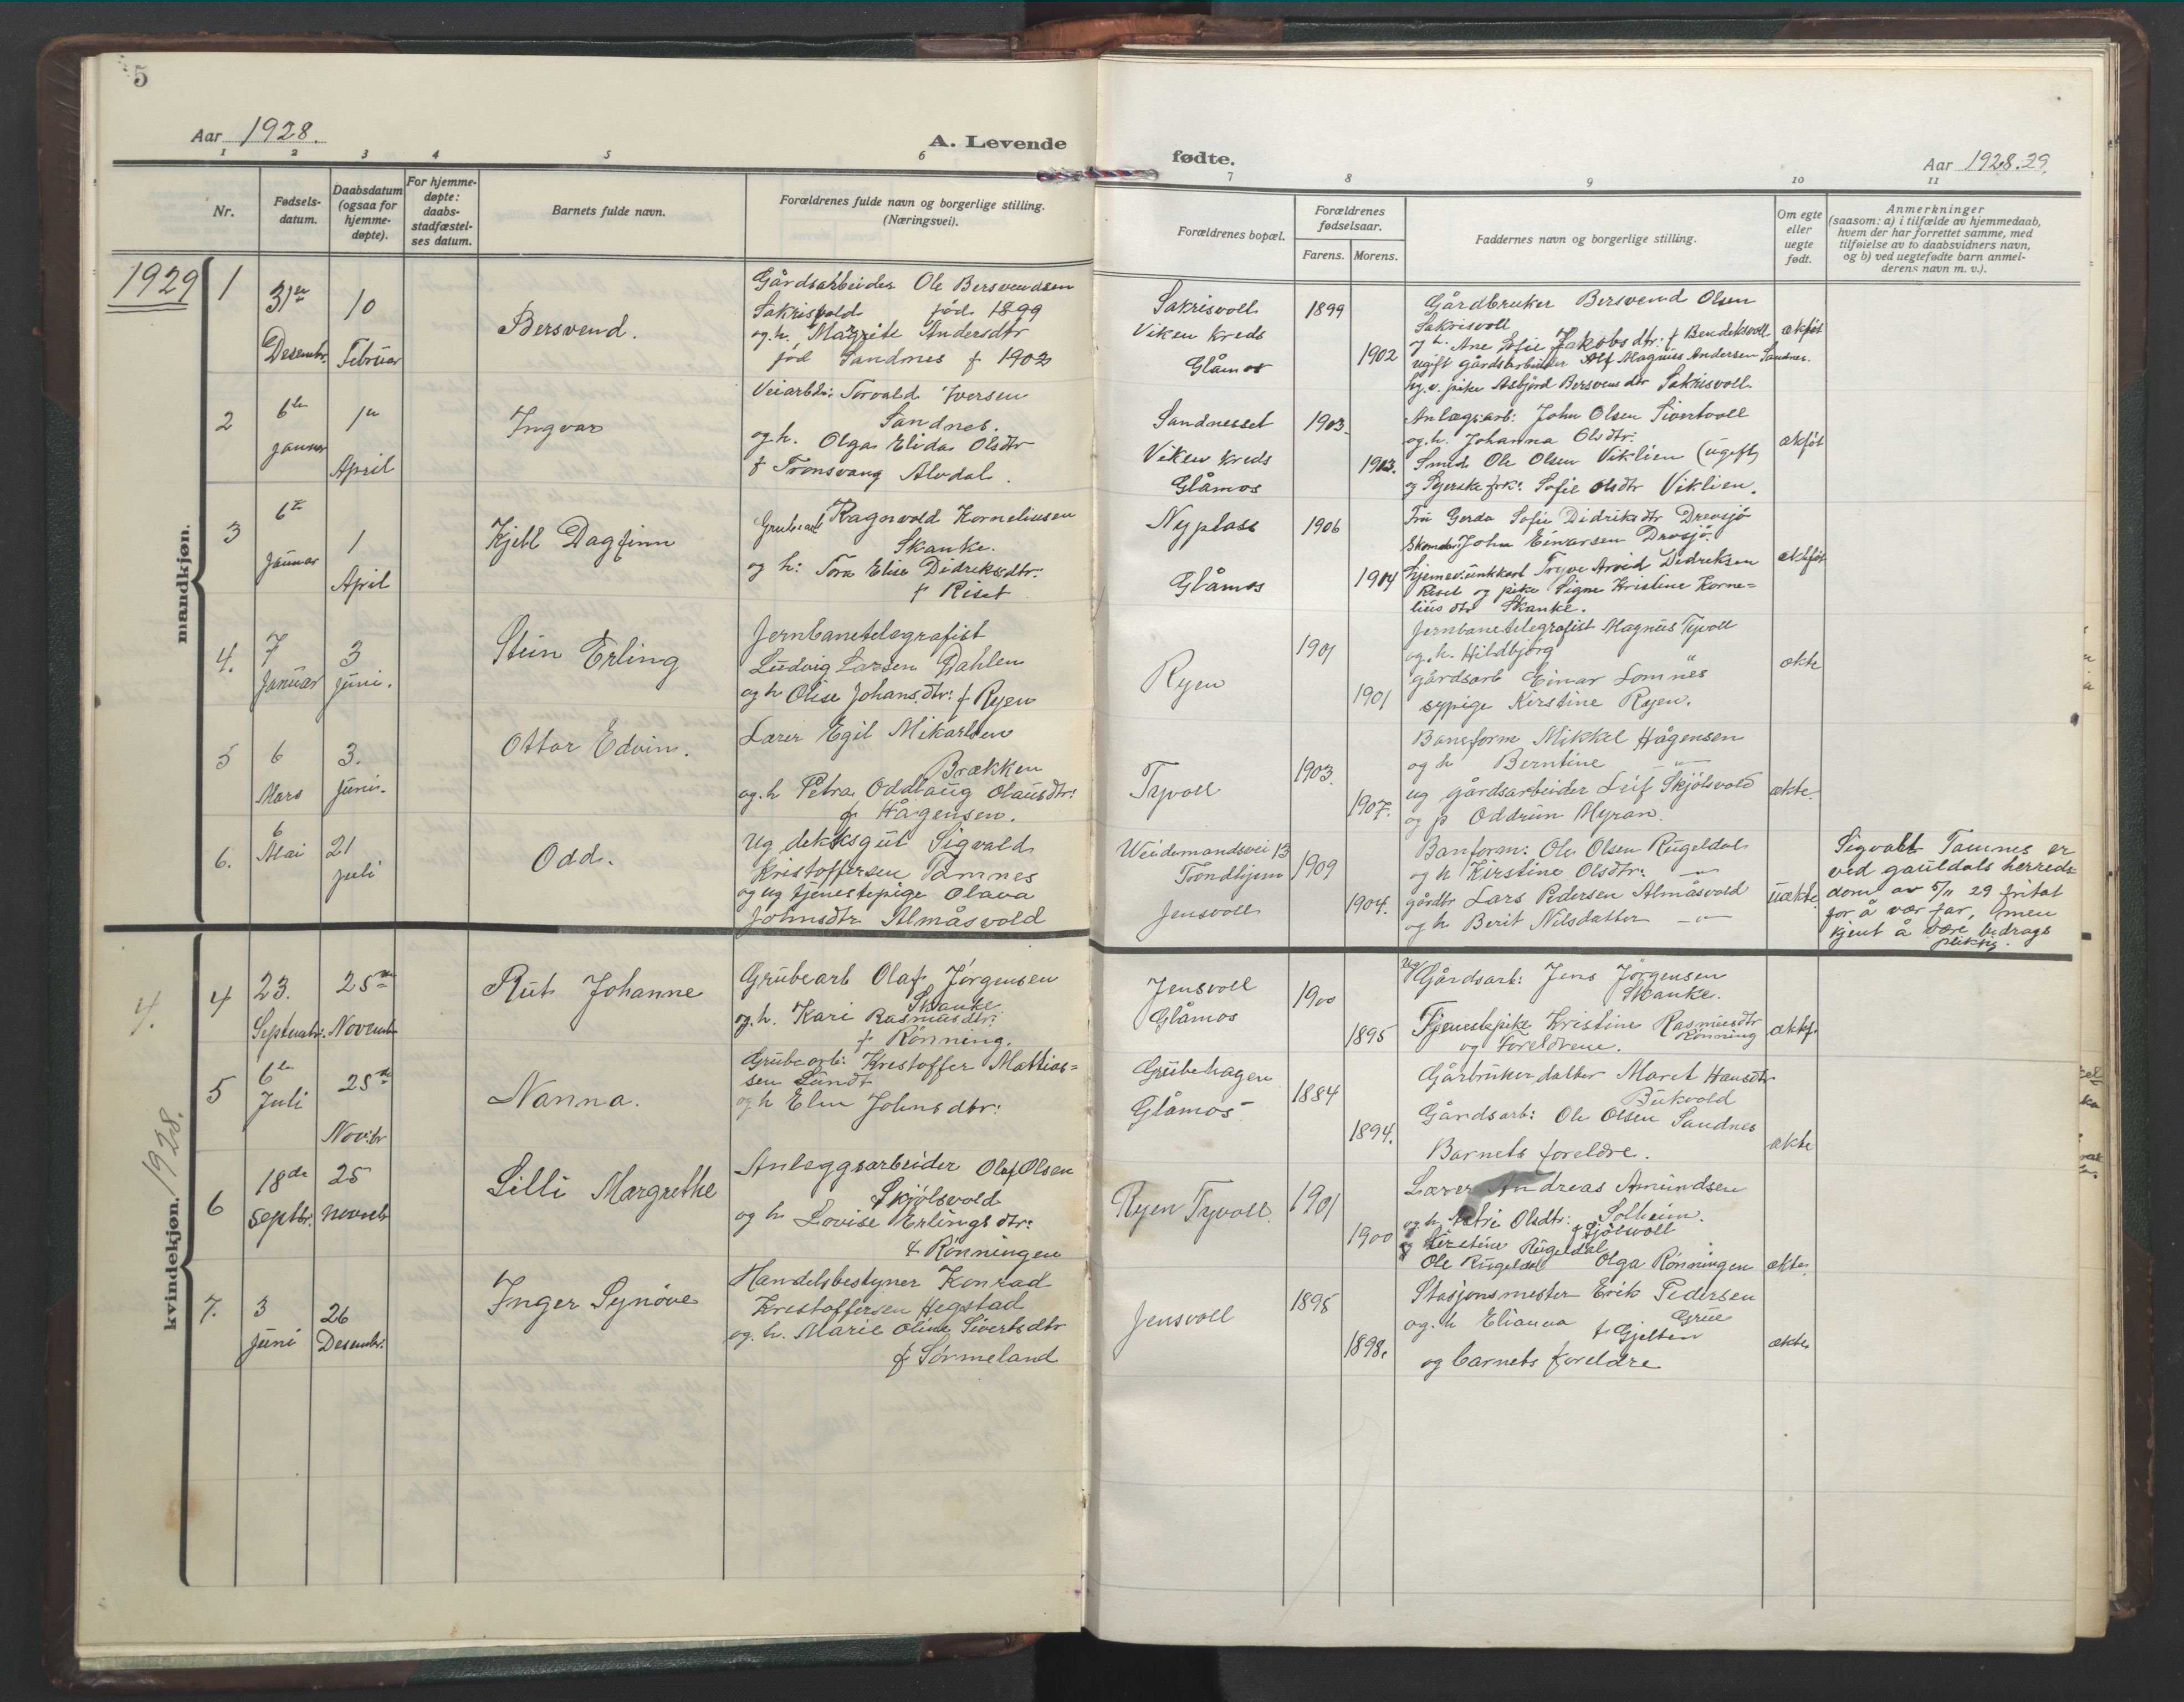 5
Aar 1928.
A. Levende
fødte.
Aar 1928.29.
1 2 3 4 5 6 7 8 9 10 11
Nr.
Fødsels-
datum.
Daabsdatum
(ogsaa for
hjemme-
døpte).
For hjemme-
døpte:
daabs-
stadfæstel-
ses datum.
Barnets fulde navn.
Forældrenes fulde navn og borgerlige stilling.
(Næringsvei).
Forældrenes bopæl.
Forældrenes
fødselsaar.
Farens. Morens.
Faddernes navn og borgerlige stilling.
Om egte
eller
uegte
født.
Anmerkninger
(saasom: a) i tilfælde av hjemmedaab,
hvem der har forrettet samme, med
tilføielse av to daabsvidners navn,
og b) ved uegtefødte barn anmel-
derens navn m. v.).
mandkjøn.
1929
1
31te
Desembr.
10
Februar
Bersvend.
Gårdsarbeider Ole Bersvendsen
Sakrisvold fød 1899
og h. Margrete Andersdtr
fød Sandnes f 1902
Sakrisvoll
Viken Kreds
Glåmos
1899
1902
Gårdbruker Bersvend Olsen
Sakrisvoll
og h. Ane Sofie Jakobsdtr: f Bendiksvoll
ugift gårdsarbeider Alf Magnus Andersen Sandnes.
og u. pike Asbjörd Bersvensdtr Sakrisvoll.
ekføt
2
6te
januar
1ste
April
Ingvar
Veiarbdr: Torvald Iversen
Sandnes.
og h. Olga Elida Olsdtr
f Tronsvang Alvdal.
Sandnesset
Viken Kreds
Glåmos
1903.
1903.
Anlægsarb: John Olsen Sivertvoll
og h. Johanna Olsdtr:
Smed Ole Olsen Viklien (ugift)
og Syerske frk: Sofie Olsdtr Viklien.
ekføt
3
6te
Januar
1
April
Kjell Dagfinn
Grubearb Ragnvald Korneliusen
Skanke.
og h: Tora Elise Didriksdtr:
f Riset
Nyplass
Glåmos
1906
1904
Fru Gerda Sofie Didriksdtr Drevsjø
Skomakr: John Einarsen Drevsjø.
Tryve Arvid Didriksen
Riset og pike Signe Kristine Korne-
liusdtr Skanke.
ekføt
4.
7
Januar
3
juni.
Stein Erling
Jernbanetelegrafist
Ludvig Larsen Dahlen
og h Olise Johansdtr: f Ryen
Ryen
1901
1901
Jernbanetelegrafist Magnus Tyvoll
og h. Hildbjörg "
gårdsarb Einar Lomnes
sypige Kirstine Ryen.
ekte
5
6
Mars
3.
Juni.
Ottar Edvin.
Lærer Egil Mikarlsen
Brækken
og h Petra Oddlaug Olausdtr:
f Hågensen.
Tyvoll
1903.
1907.
Baneform Mikkel Hågensen
og h Berntine —"—
ug gårdsarbeider Leif Skjölsvold
og p Oddrun Myran.
ekte.
6.
6
Mai
21
juli
Odd.
Ug deksgut Sigvald
Kristoffersen Tamnes
og ug tjenestepige Olava
Johnsdtr Almåsvold
Weidemandsvei 13
Trondhjem
Jensvoll
1909
1904.
Banform: Ole Olsen Rugeldal
og h Kirstine Olsdtr: —"—
gårdbr Lars Pedersen Almåsvold
og h Berit Nilsdatter —"—
uekte
Sigvalt Tamnes er
ved gauldals herreds-
dom av 5/11 29 fritat
for å vær far, men
kjent å være bidrags
pliktig.
kvindekjøn. 1928.
4.
4
23.
Septembr.
25de
Novembr
Rut Johanne
Grubearb Olaf Jørgensen
Skanke
og h. Kari Rasmusdtr:
f Rønning.
Jensvoll
Glåmos
1900
1895
Ug Gårdsarb: Jens Jørgensen
Skanke.
Tjenestepike Kristine Rasmusdtr
Rönning
og Foreldrene.
ektf.
5
6te
Juli
25de
Novbr
Nanna.
Grubearb: Krestoffer Mathias-
sen Lundt
og h Elen Johnsdtr:
Grubehagen
Glåmos
1884
1894.
Gårbrukerdatter Maret Hansdtr
Bukvold
Gårdsarb: Ole Olsen Sandnes
Barnets foreldre.
ekte
6
18de
septbr.
25
novembr
Lilli Margrethe
Anleggsarbeider Olaf Olsen
Skjölsvold
og h Lovise Erlingsdtr:
f Rönningen
Ryen Tyvoll.
1901
1900
Lærer Andreas Amundsen
Solheim.
og h. Olsdtr: f Skjölsvoll
og Kirstine Rugeldal
Ole Rugeldal Olga Rönningen
ekte
7.
3
juni
26
Desembr.
Inger Synöve
Handelsbestyrer Konrad
Krestoffersen Hegstad
og h. Marie Oline Sivertsdtr
f Sörmeland
Jensvoll
1895
1898.
Stasjonsmester Erik Pedersen
Grue
og h Elianna f. Gjelten
og barnets foreldre
ekte